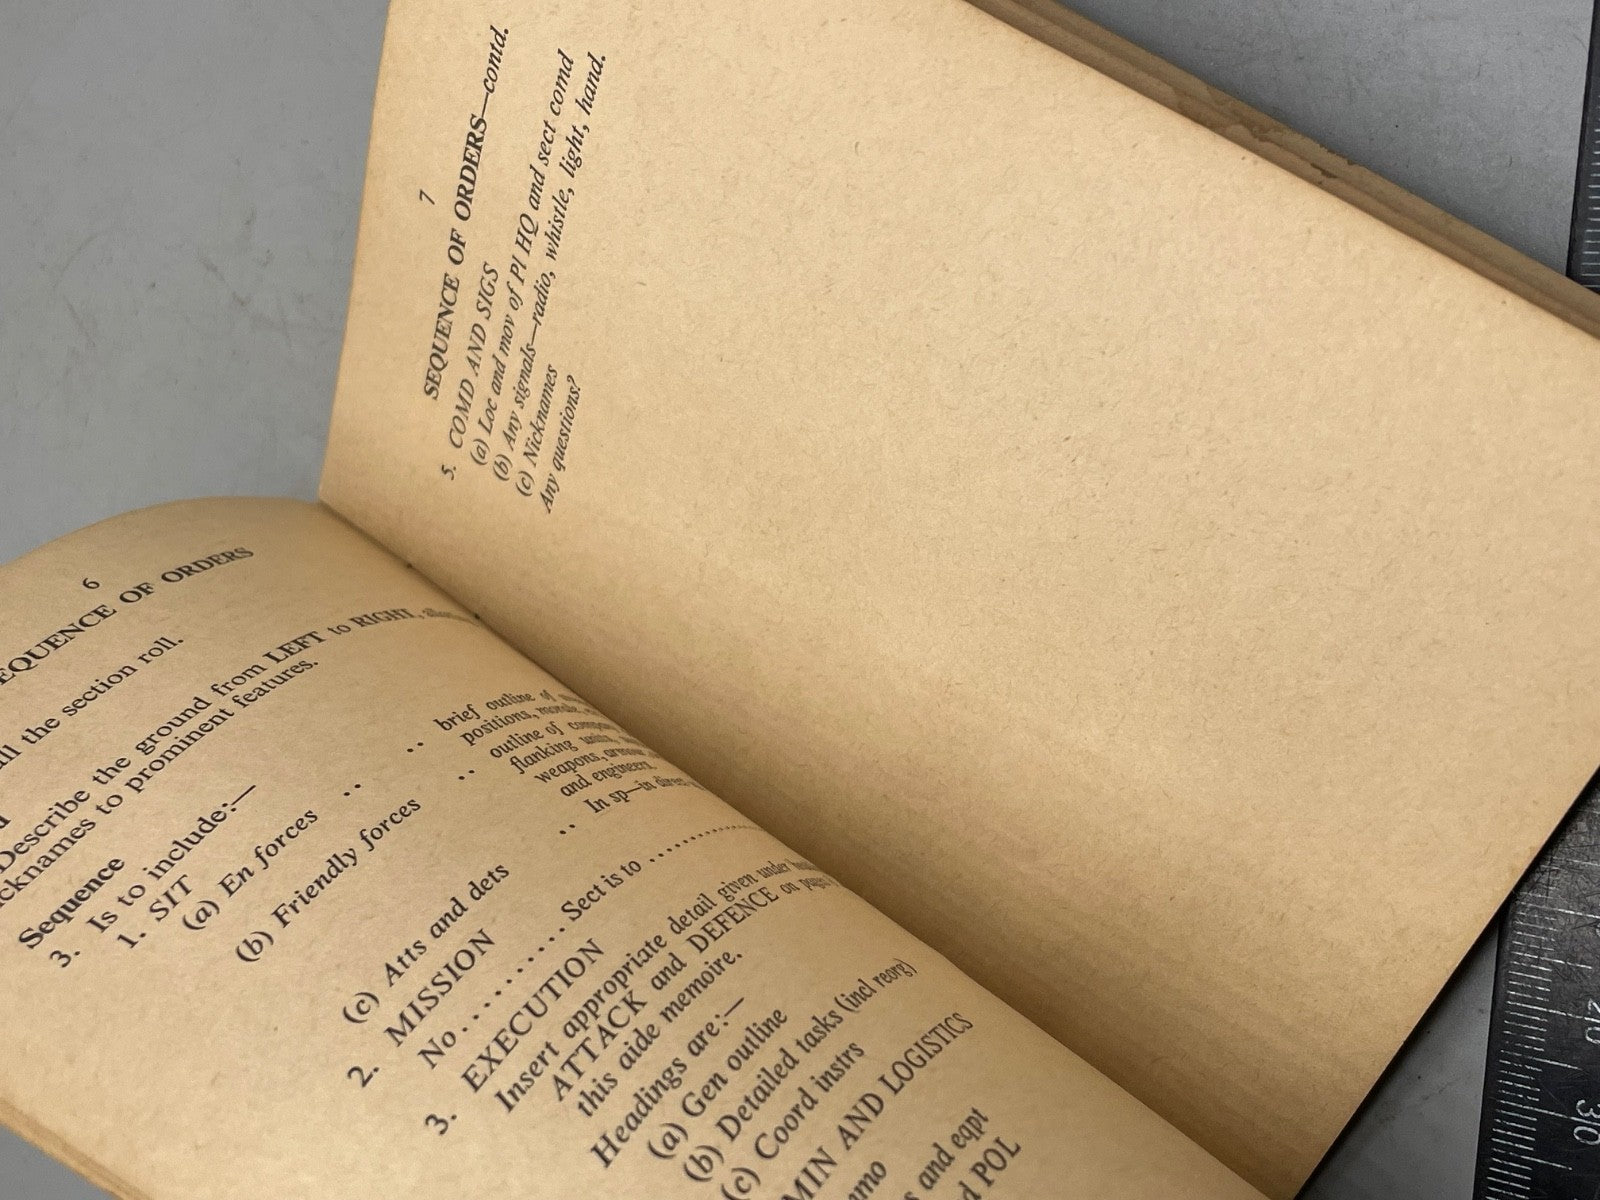 6
EQUENCE OF ORDERS
the section roll.
Describe the ground from LEFT to RIGHT,
to prominent features.
Sequence
3. Is to include:—
1. SIT
(a) En forces .. .. brief outline of
positions, morale,
(b) Friendly forces .. outline of
flanking units,
weapons,
and engineers.
(c) Atts and dets .. In sp—in
2. MISSION
No............ Sect is to ............
3. EXECUTION
Insert appropriate detail given under
ATTACK and DEFENCE on
this aide memoire.
Headings are:—
(a) Gen outline
(b) Detailed tasks (incl reorg)
(c) Coord instrs
MIN AND LOGISTICS
mmo
s and eqpt
d POL
7
SEQUENCE OF ORDERS—contd.
5. COMD AND SIGS
(a) Loc and mov of Pl HQ and sect comd
(b) Any signals—radio, whistle, light, hand.
(c) Nicknames
Any questions?
20
30